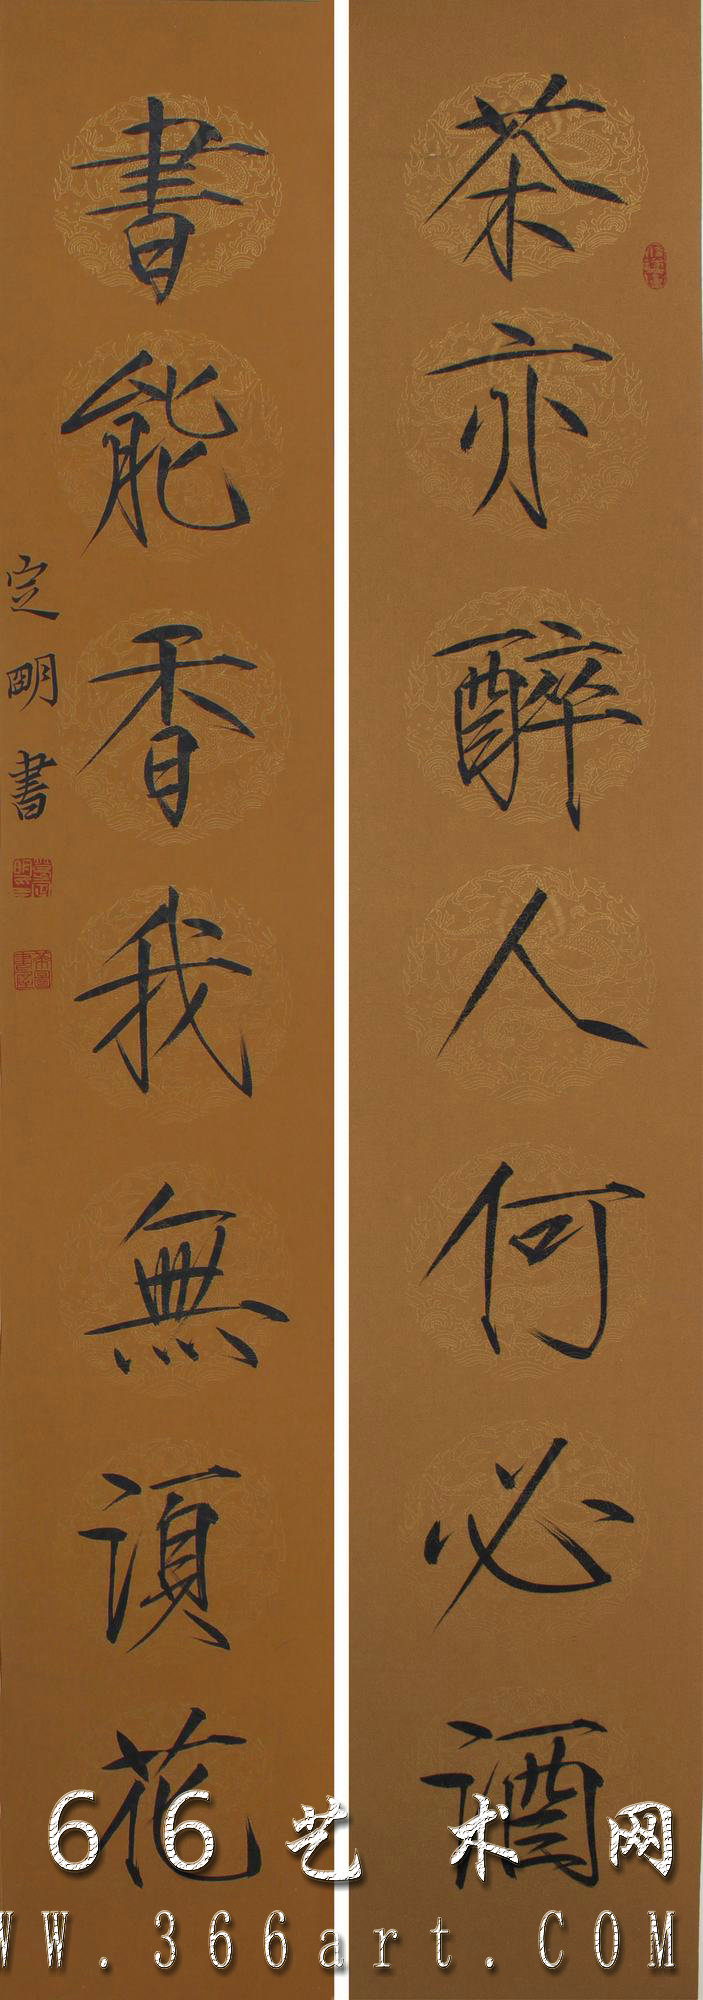 茶亦醉人何必酒
書能香我無須花
定明書
66艺术网
WW.366art.COM